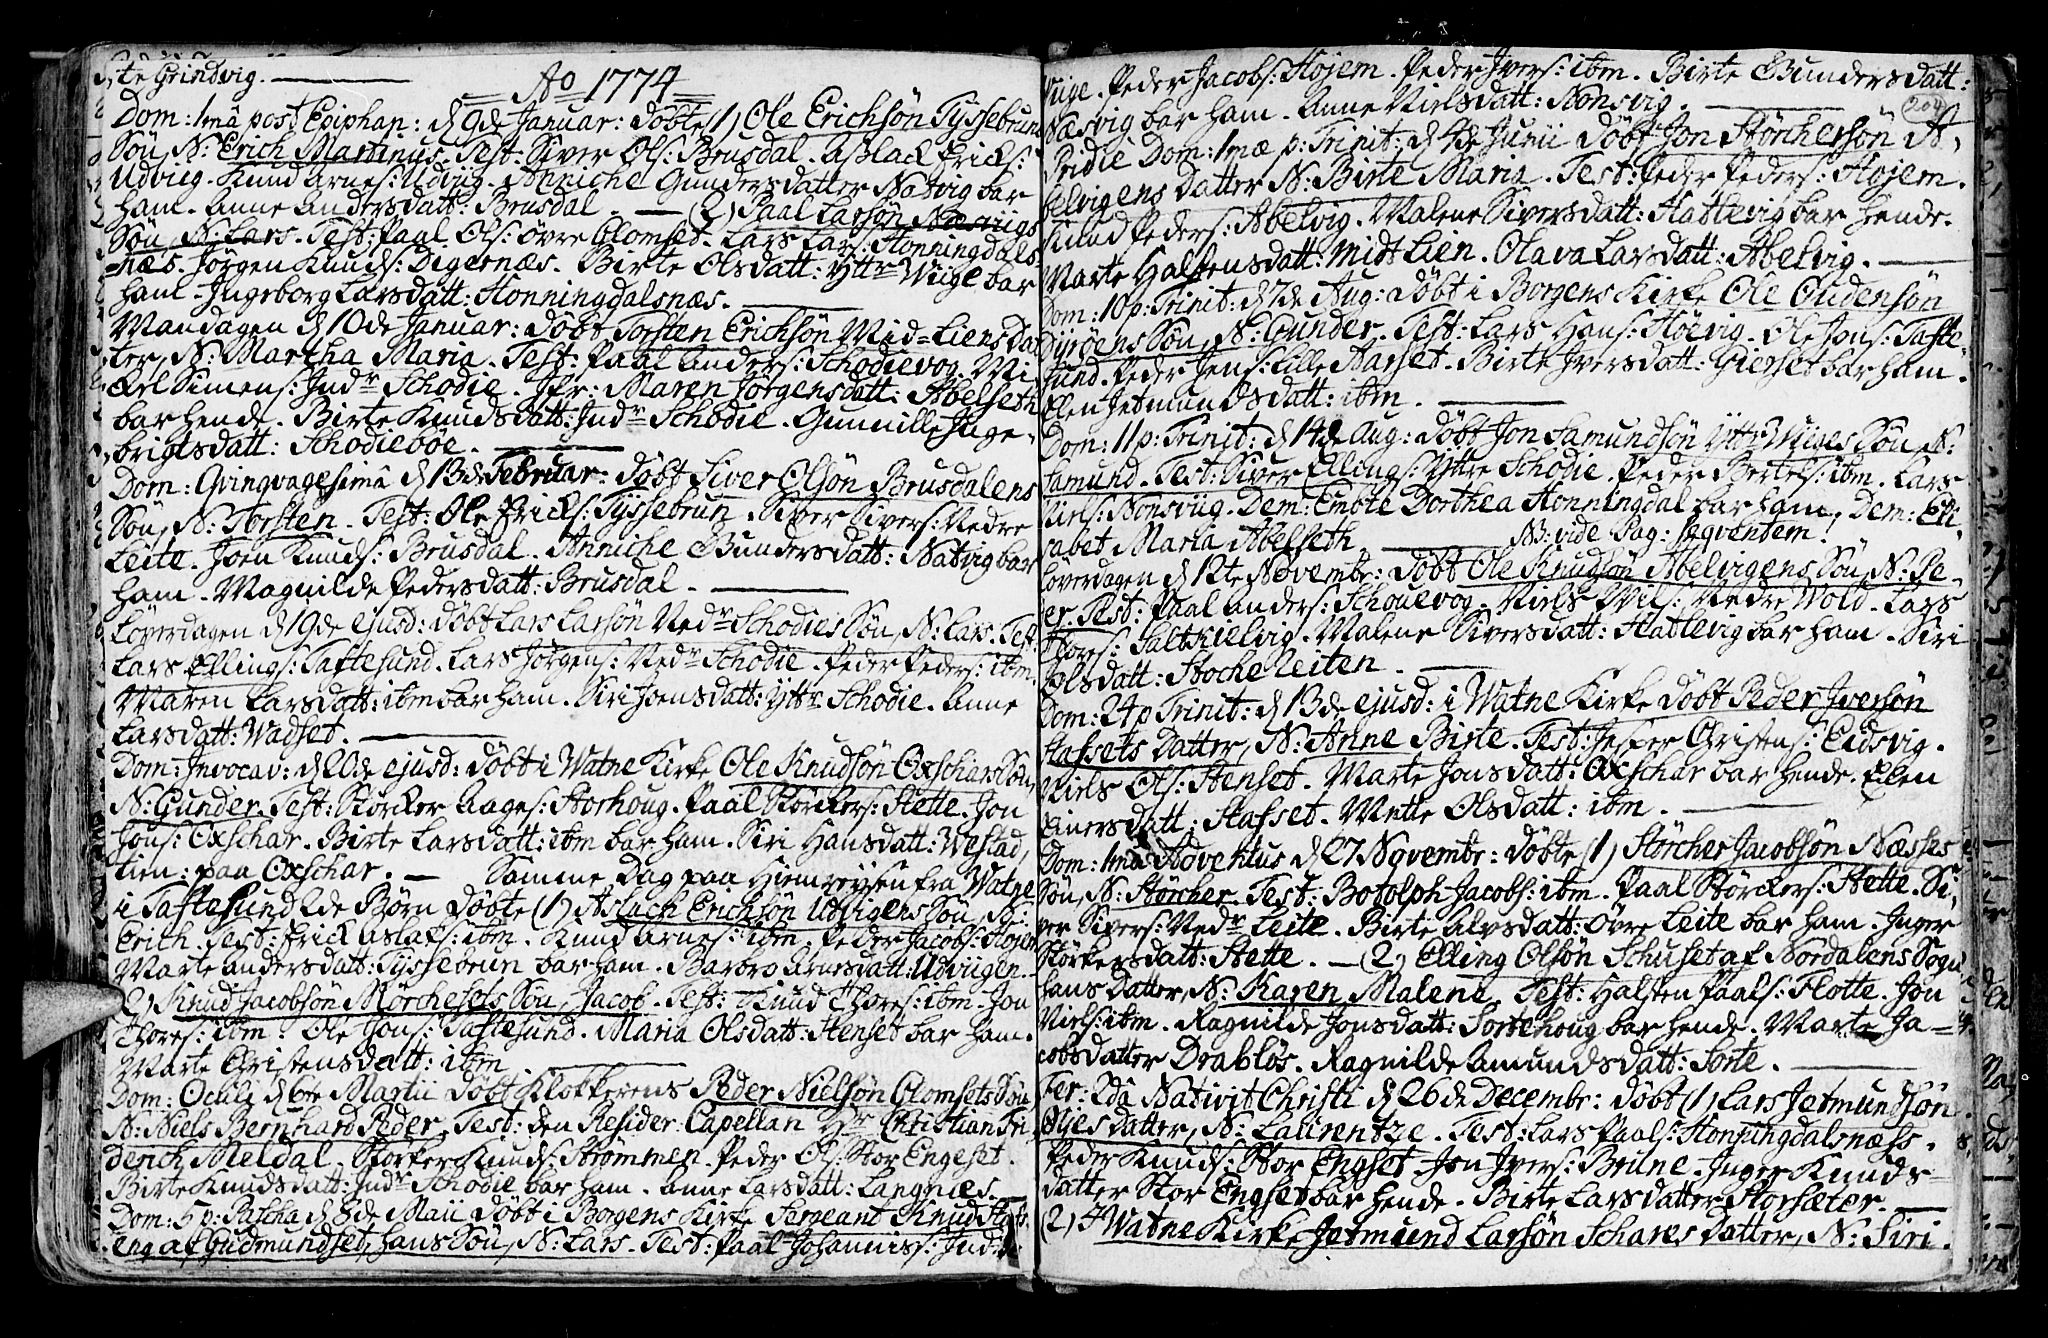 te Grindvig.
Ao 1774
Dom: 1mâ post Epiphan: d 9de Januar: döbte (1) Ole Erichsön Tyssebruns
Sön, N: Erich Martinus. Test: Siver Ols: Brusdal. Aslack Erics:
Udviig. Knud Arnes: Udviig. Anniche Gundersdatter Natvig bar
ham. Anne Andersdatt: Brusdal. (2) Paal Larsön Næsviigs
Sön, N: Lars. Test: Paal Ols: Övre Glomset. Lars Lars: Honningdals
næs. Jörgen Knuds: Digernæs. Birte Olsdatt: Yttr Wiige bar
ham. Ingeborg Larsdatt: Honningdalsnæs.
Mandagen d 10de Januar: döbt Torsten Erichsön Mid=Liens Dat
ter, N: Martha Maria. Test: Paal Anders: Schodievog. Mi-
Simens: Indr Schodie. Jfr: Maren Jörgensdatt: Abelseth
bar hende. Birte Knudsdatt: Indr Schodie. Gunnille Inge-
brigtsdatt: Schodieböe.
Dom: Qvinqvagesimâ d 13de Februar: döbt Siver Olsön Brusdalens
Sön, N: Torsten. Test: Ole Ericks: Tyssebrun. Siver Sivers: Nedre
Leite. Joen Knuds: Brusdal. Anniche Gundersdatt: Natvig bar
ham. Magnilde Pedersdatt: Brusdal.
Löverdagen d 19de ejusd: döbt Lars Larsön Nedr Schodies Sön, N: Lars. Test:
Lars Ellings: Taftesund. Lars Jörgens: Nedr Schodie. Peder Peders: ibm.
Maren Larsdatt: ibm bar ham. Siri Joensdatt: Yttr Schodie. Anne
Larsdatt: Wadset.
Dom: Invocav: d 20de ejusd: döbt i Watne Kirke Ole Knudsön Oxschars Sön,
N: Gunder. Test: Störcker Aages: Storhoug. Paal Störckers: Stette. Jon
Jons: Oxschar. Birte Larsdatt: ibm bar ham. Siri Hansdatt: Westad,
tien: paa Oxschar. Samme Dag paa Hiemreysen fra Watne
i Taftesund 2de Börn döbte (1) Aslach Erichsön Udvigens Sön, N:
Erich. Test: Erick Aslaks: ibm. Knud Arnes: ibm. Peder Jacobs: Hojem
Marte Andersdatt: Tyssebrun bar ham. Barbro Arnesdatt: Udviigen.
2) Knud Jacobsön Mörchesets Sön, Jacob. Test: Knud Thores: ibm. Jon
Thores: ibm. Ole Jons: Taftesund. Maria Olsdatt: Stenset bar ham.
Marte Christensdatt: ibm.
Dom: Oculi d 6te Martii döbt Klokkerens Peder Nielsön Glomsets Sön
N: Niels Bernhard Peder. Test: den Resider: Capellan Hr Christian Fri
derich Meldal. Störker Knuds: Strömmen. Peder Ols: Stor Engeset.
Birte Knudsdatt: Indr Schodie bar ham. Anne Larsdatt: Langnæs.
Dom: 5 p: Pascha d 8de Maii döbt i Borgens Kirke Sergeant Knud Staf-
eng af Gudmundset, hans Sön, N: Lars. Test: Paal Johanniss: Indr
Wiige. Peder Jacobs: Hojem. Peder Ivers: ibm. Birte Gundersdatt:
Næsvig bar ham. Anne Nielsdatt: Nonsvig.
204
Pridie Dom: 1mæ p: Trinit: d 4de Junii döbt Jon Störchersön A-
belvigens Datter N: Birte Maria. Test: Peder Peders: Hojem.
Knud Peders: Abelvig. Malene Siversdatt: Hatlevig bar hende.
Marte Halstensdatt: Midt Lien. Olava Larsdatt: Abelvig.
Dom: 10 p: Trinit: d 7de Aug: döbt i Borgens Kirke Ole Oudensön
Dyröens Sön, N: Gunder. Test: Lars Hans: Höevig. Ole Jons: Tafte-
sund. Peder Jens: Lille Aarset. Birte Iversdatt: Gierset bar ham.
Elen Jetmundsdatt: ibm.
Dom: 11 p: Trinit: d 14de Aug: döbt Jon Samundsön Yttr Wiiges Sön, N:
Samund. Test: Siver Ellings: Yttre Schodie. Peder Bertels: ibm. Lars
Niels: Nonsviig. Dem: Enöte Dorthea Honningdal bar ham, Dem: Eli-
sabet Maria Abelseth. NB: vide Pag: seqventem.
Löverdagen d 12te Novembr: döbt Ole Knudsön Abelvigens Sön, N: Pe-
er. Test: Paal Anders: Schouevog. Niels Niels: Nedre Wold. Lars
Thores: Saltkielvig. Malene Siversdatt: Hatlevig bar ham. Siri
Olsdatt: Stocheleiten.
Dom: 24 p Trinit: d 13de ejusd: i Watne Kirke döbt Peder Iversön
Stafsets Datter, N: Anne Birte. Test: Jesper Christens: Eidsvig.
Niels Ols: Stenset. Marte Jonsdatt: Oxschar bar hende. Elen
Einersdatt: Stafset. Mette Olsdatt: ibm.
Dom: 1mâ Adventus d 27 Novembr: döbte (1) Störcher Jacobsön Næsses
Sön, N: Störcher. Test: Botolph Jacobs: ibm. Paal Störckers: Stette. Si-
ver Sivers: Nedr Leite. Birte Alvsdatt: Övre Leite bar ham. Inger
Störkersdatt: Stette. (2) Elling Olsön Schuset af Nordalens Sogn
hans Datter, N: Karen Malene. Test: Halsten Paals: Flotte. Jon
Niels: ibm. Ragnilde Jonsdatt: Sortehoug bar hende. Marte Ja-
cobsdatter Drablös. Ragnilde Amundsdatt: Sorte.
Fer: 2dâ Nativit Christi d 26de Decembr: döbt (1) Lars Jetmundsön
Öyes Datter, N: Laurentze. Test: Lars Paals: Honningdalsnæss.
Peder Knuds: Stor Engset. Jon Ivers: Brune. Inger Knuds-
datter Stor Engset bar hende. Birte Larsdatter Storsæter.
(2) I Watne Kirke Jetmund Larsön Schares Datter, N: Siri.